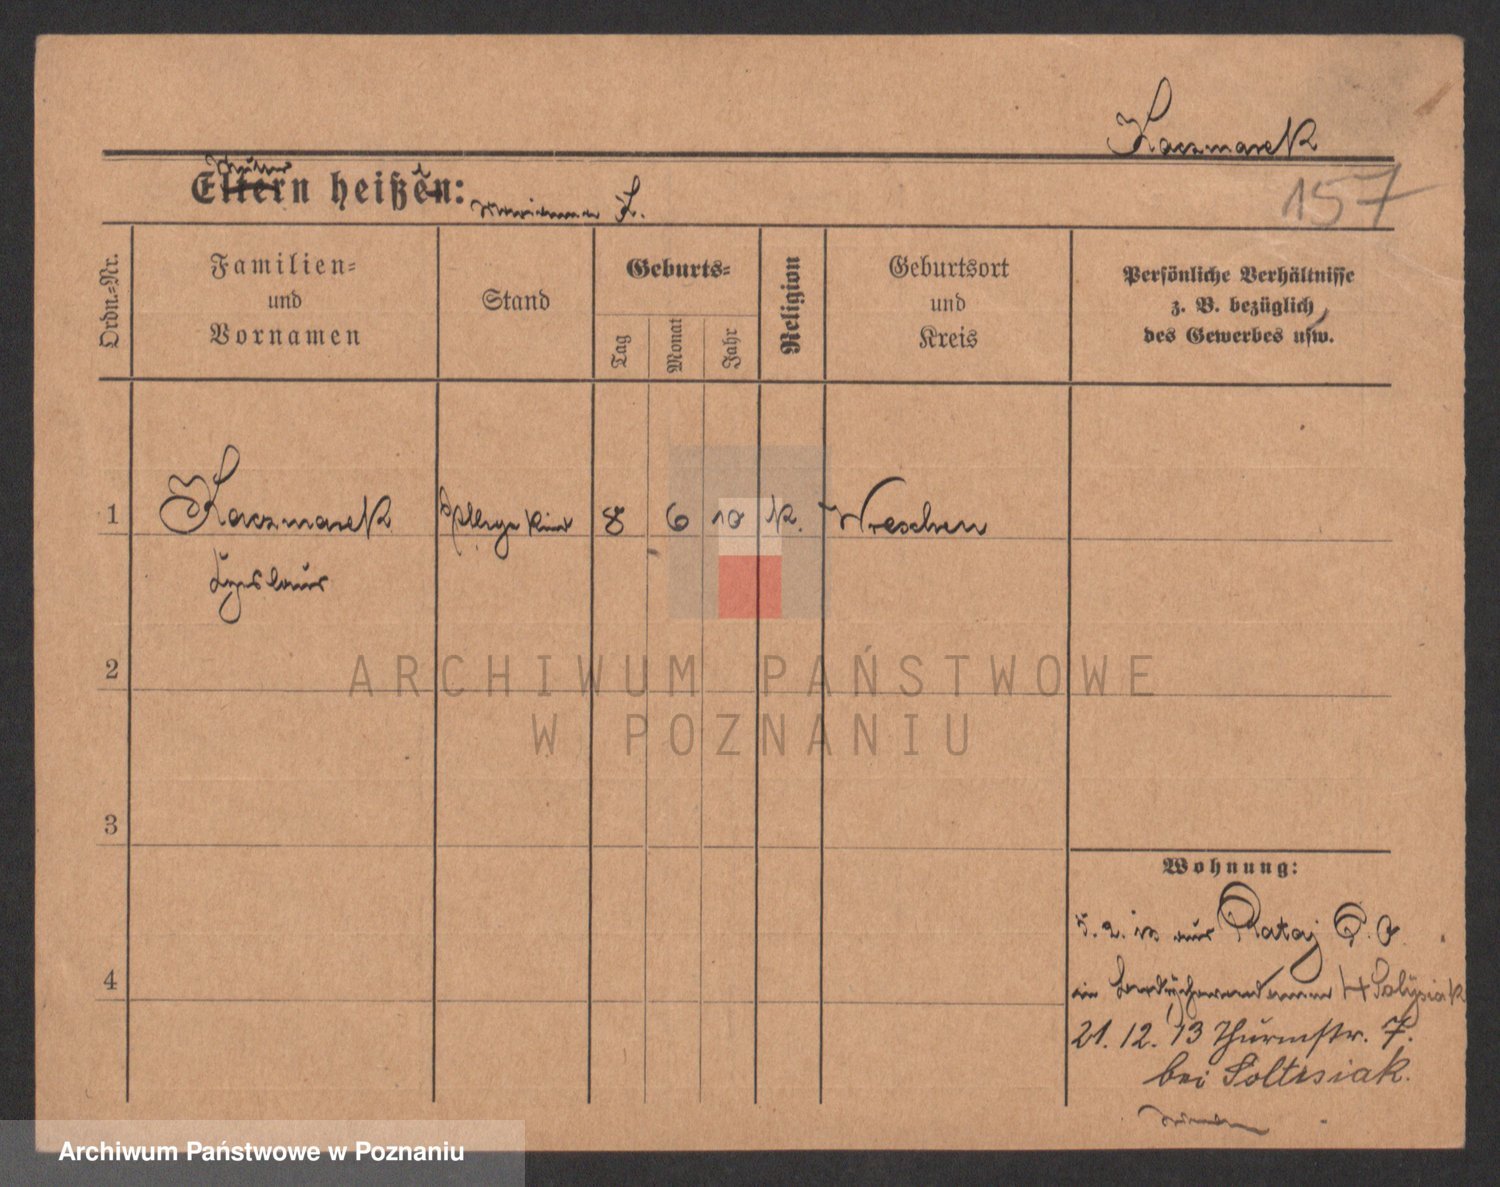 Kaczmarek
157
Mutter
Eltern heißen: Marianna K.
Ordn.-Nr.
Familien-
und
Vornamen
Stand
Geburts-
Tag
Monat
Jahr
Religion
Geburtsort
und
Kreis
Persönliche Verhältnisse
z. B. bezüglich
des Gewerbes usw.
1 Kaczmarek Pflegekind 8 6 10 k. Wreschen
2
3
4
Wohnung:
Rataj
21. 12. 13 Thurmstr. 7.
bei
ARCHIWUM PAŃSTWOWE
W POZNANIU
Archiwum Państwowe w Poznaniu